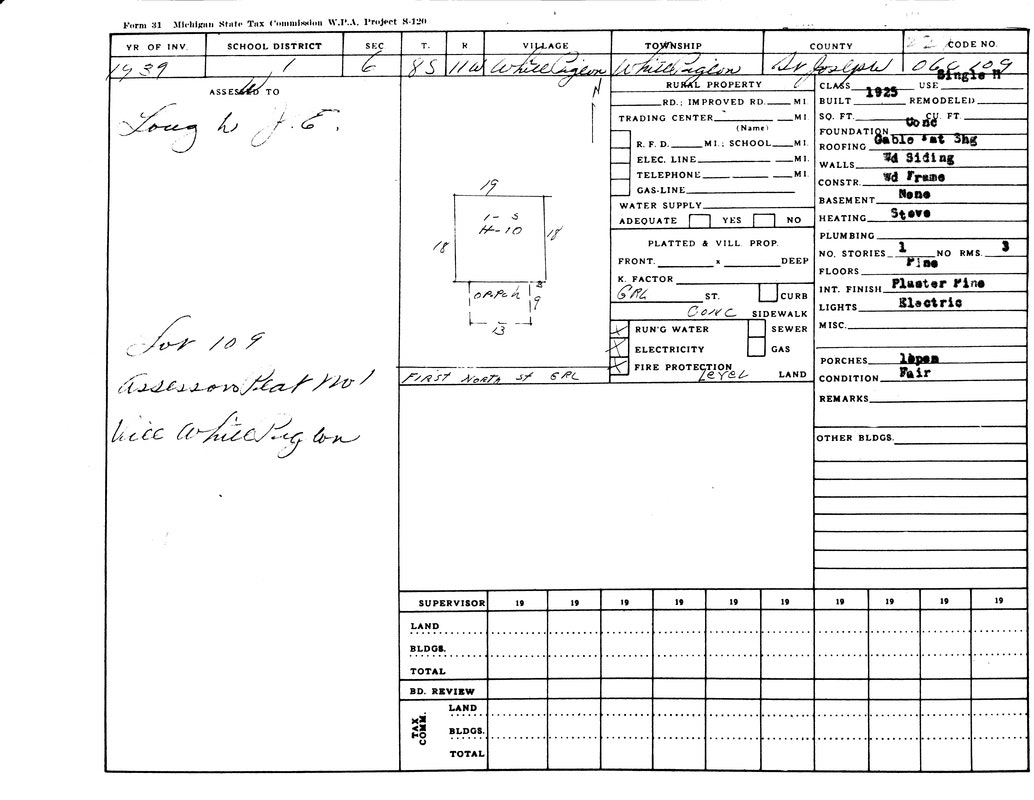 Form 31 Michigan State Tax Commission W.P.A. Project S-120
YR OF INV. SCHOOL DISTRICT SEC T. R VILLAGE TOWNSHIP COUNTY CODE NO.
1939 1 6 8S 11W White Pigeon White Pigeon St Joseph 109
ASSESSED TO
J. E.
Lot 109
Assessors Plat No 1
Vill White Pigeon
N
19
1- S
H-10
18
18
3
O.P.Rch
9
13
FIRST NORTH ST GRL
RURAL PROPERTY
RD.; IMPROVED RD. MI.
TRADING CENTER MI.
(Name)
R. F. D. MI.; SCHOOL MI.
ELEC. LINE MI.
TELEPHONE MI.
GAS-LINE
WATER SUPPLY
ADEQUATE YES NO
PLATTED & VILL. PROP.
FRONT. x DEEP
K. FACTOR
GRL ST. CURB
CONC SIDEWALK
RUN'G WATER SEWER
ELECTRICITY GAS
FIRE PROTECTION
Level LAND
CLASS USE Single H
BUILT 1925 REMODELED
SQ. FT. CU. FT.
FOUNDATION Conc
ROOFING Gable Pat Shg
WALLS Wd Siding
CONSTR. Wd Frame
BASEMENT None
HEATING Stove
PLUMBING
NO. STORIES 1 NO RMS. 3
FLOORS Pine
INT. FINISH Plaster Pine
LIGHTS Electric
MISC.
PORCHES 1Open
CONDITION Fair
REMARKS
OTHER BLDGS.
SUPERVISOR 19 19 19 19 19 19 19 19 19 19
LAND
BLDGS.
TOTAL
BD. REVIEW
TAX COMM.
LAND
BLDGS.
TOTAL